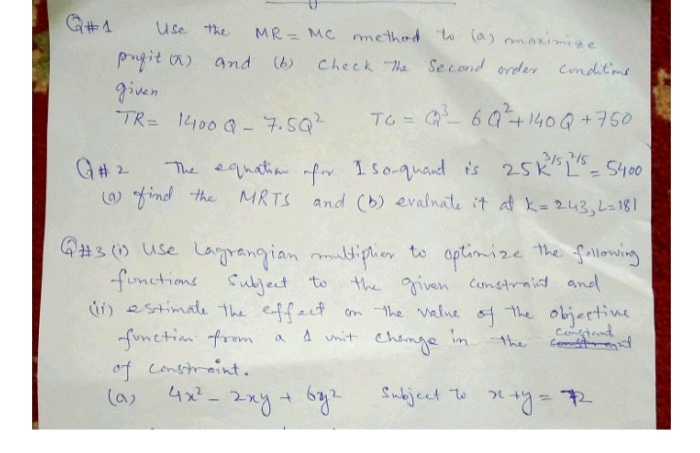 Q#1 Use the MR = MC method to (a) maximize
profit (π) and (b) check the second order conditions
given
TR = 1400 Q - 7.5Q² TC = Q³ - 6Q² + 140Q + 750
Q#2 The equation for Iso-quant is 25K^3/5 L^2/5 = 5400
(a) find the MRTS and (b) evaluate it at K = 243, L = 181
Q#3 (i) Use Lagrangian multiplier to optimize the following
functions subject to the given constraint and
(ii) estimate the effect on the value of the objective
function from a 1 unit change in the constant
of constraint.
(a) 4x² - 2xy + 6y² Subject to x + y = 72